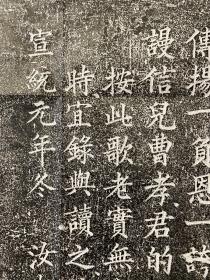 傳揚一負恩一
謾信兒曹孝君的
按此歌老實無
時宜錄與讀之
宣統元年冬汝